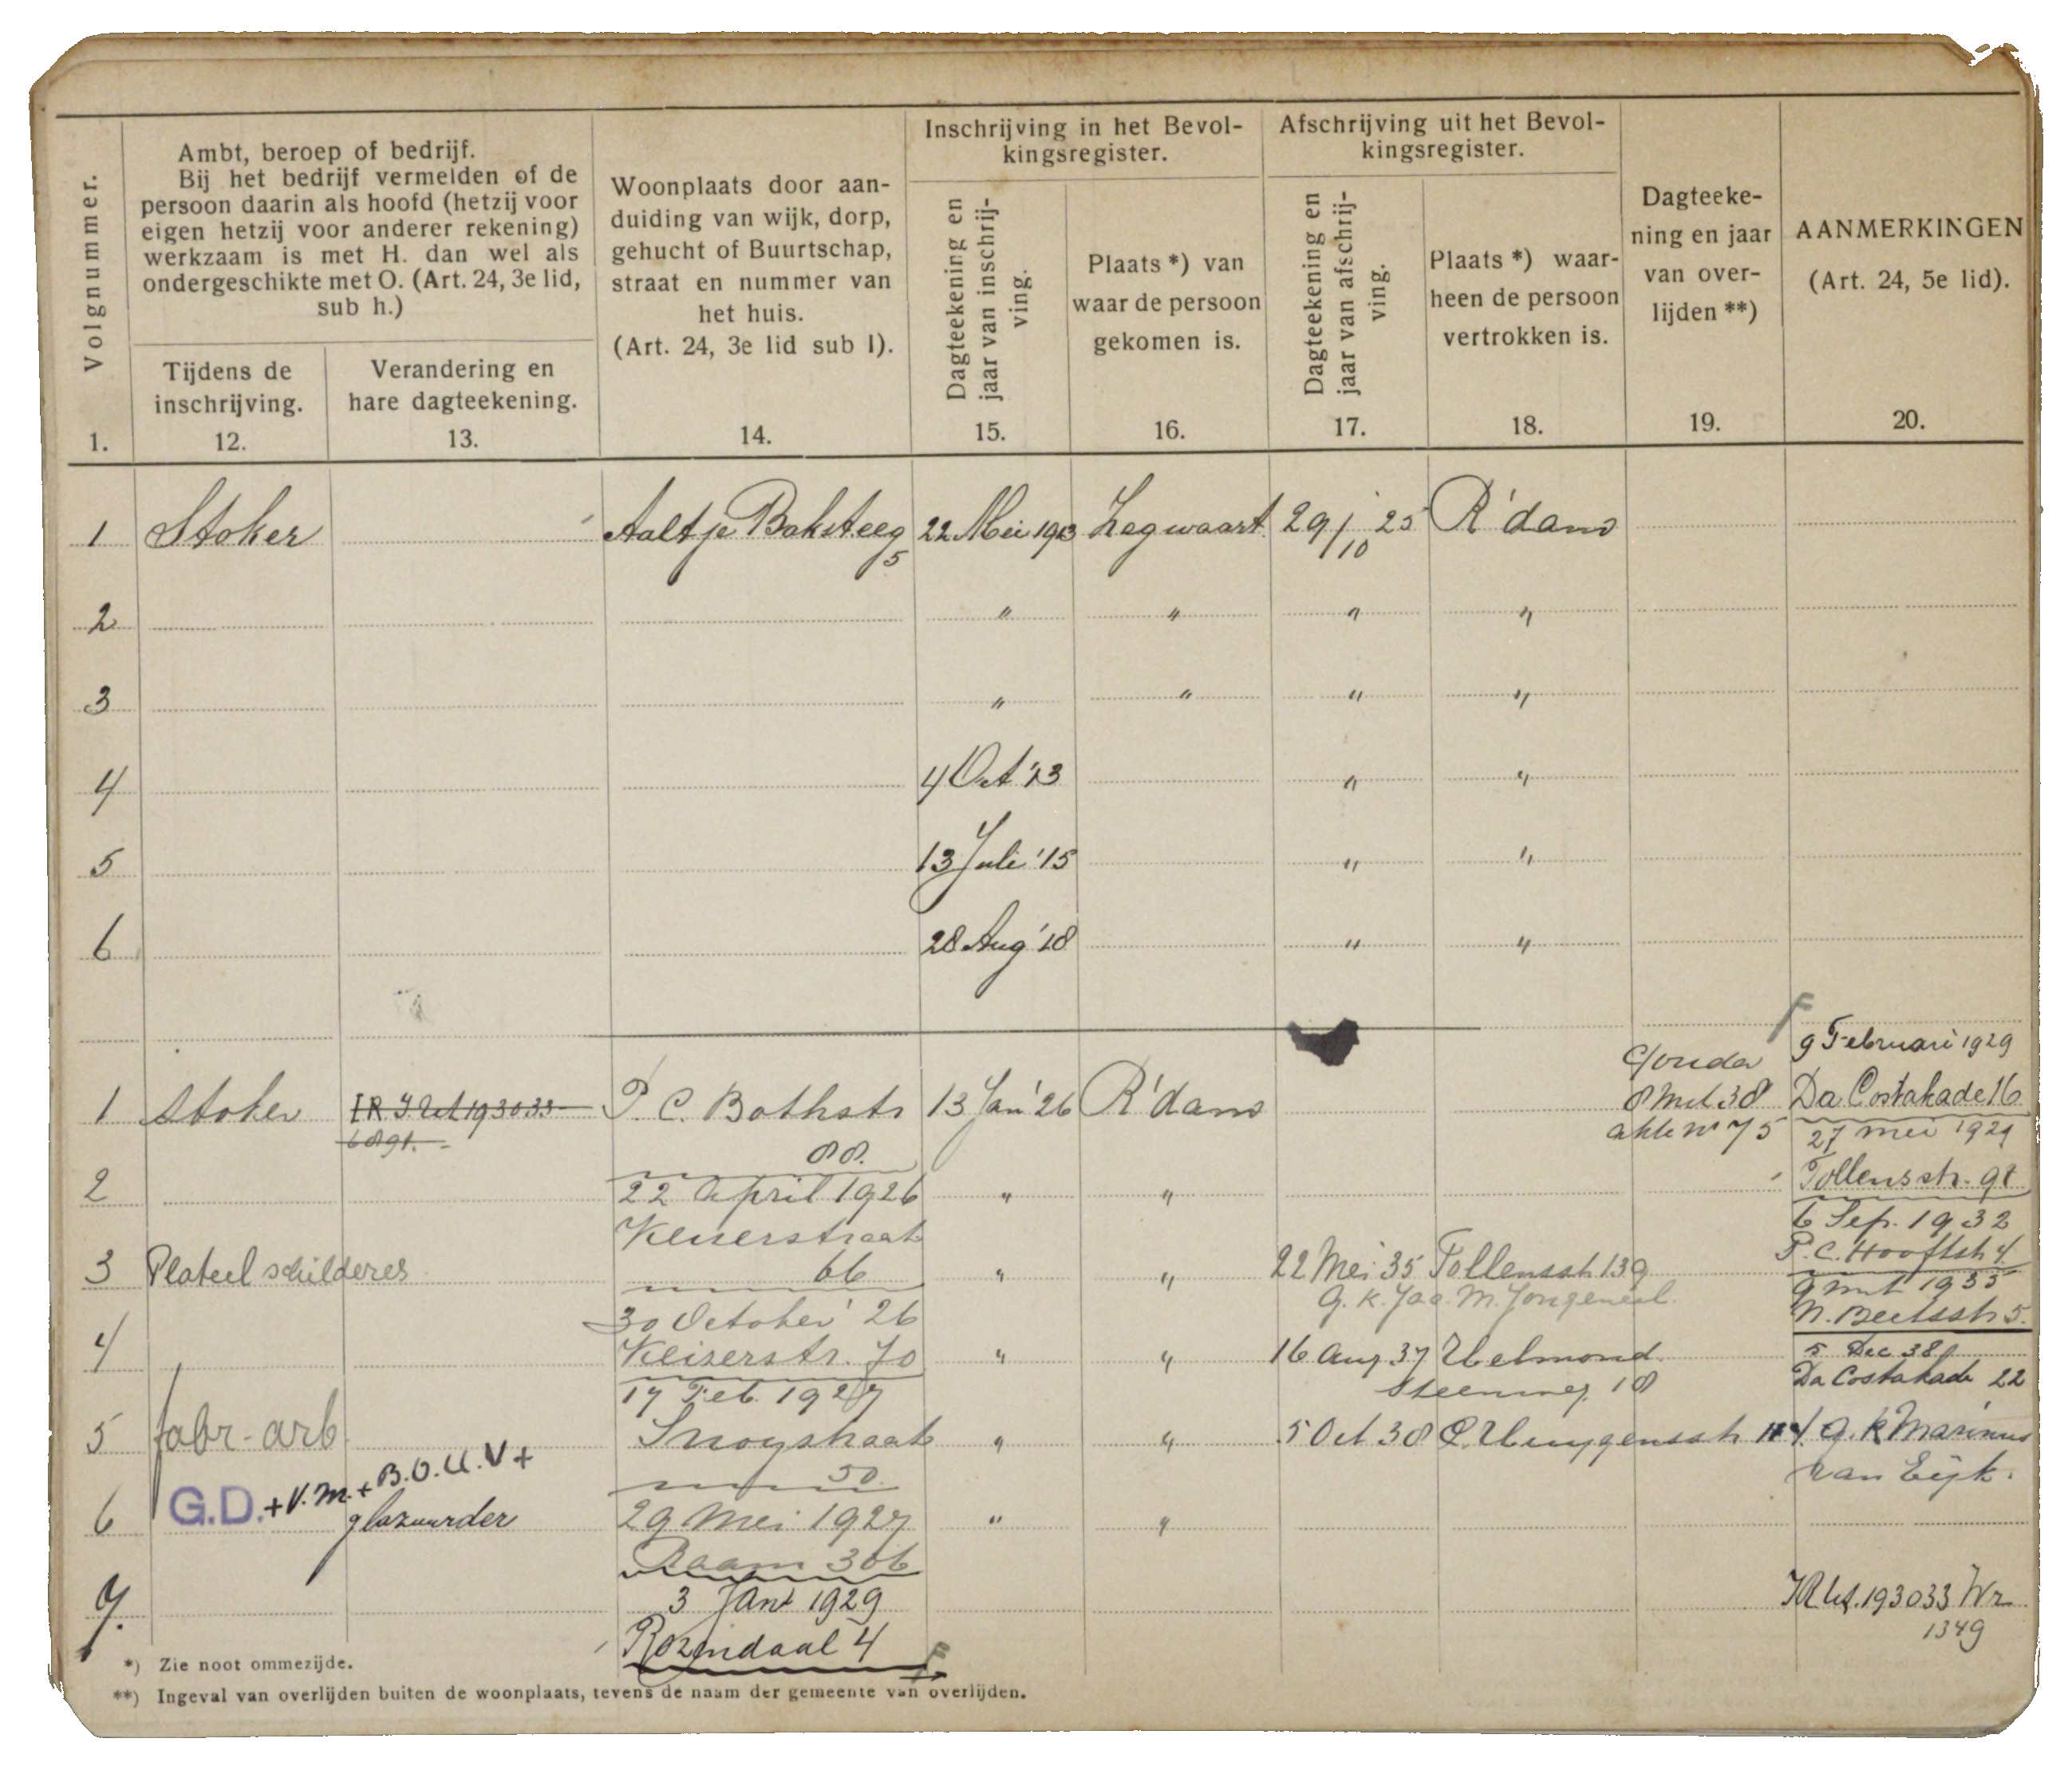 Volgnummer.
Ambt, beroep of bedrijf.
Bij het bedrijf vermelden of de
persoon daarin als hoofd (hetzij voor
eigen hetzij voor anderer rekening)
werkzaam is met H. dan wel als
ondergeschikte met O. (Art. 24, 3e lid,
sub h.)
Tijdens de
inschrijving.
Verandering en
hare dagteekening.
Woonplaats door aan-
duiding van wijk, dorp,
gehucht of Buurtschap,
straat en nummer van
het huis.
(Art. 24, 3e lid sub l).
Inschrijving in het Bevol-
kingsregister.
Dagteekening en
jaar van inschrij-
ving.
Plaats *) van
waar de persoon
gekomen is.
Afschrijving uit het Bevol-
kingsregister.
Dagteekening en
jaar van afschrij-
ving.
Plaats *) waar-
heen de persoon
vertrokken is.
Dagteeke-
ning en jaar
van over-
lijden **)
AANMERKINGEN
(Art. 24, 5e lid).
1. 12. 13. 14. 15. 16. 17. 18. 19. 20.
1 Stoker Aaltje Baksteeg 22 Mei 1913 Zegwaart 29/10 25 R'dam
5
2 " " " "
3 " " " "
4 4 Oct '13 " "
5 13 Juli '15 " "
6 28 Aug '18 " "
F
9 Februari 1929
Gouda
1 Stoker P. C. Bothstr 13 Jan '26 R'dam 8 Mrt 38 Da Costakade 16
88. akte no 75 27 mei 1929
2 22 April 1926 " " Tollensstr. 91
Keiserstraat 6 Sep. 1932
3 Plateelschilderes 66 " " 22 Mei 35 Tollensstr 139 P.C. Hooftstr 4
g. k. Jac. M. Jongeneel 9 mrt 1935
30 October '26 N. Beetsstr 5.
4 Keizerstr. 70 " " 16 Aug 37 Helmond 5 Dec 38
Steenweg 18 Da Costakade 22
17 Feb. 1927
5 fabr-arb Snoystraat " " 5 Oct 38 C. Huygensstr g. k Marinus
50. van Eijk.
G.D. + V.M. + B.O.U.V +
6 glazuurder 29 Mei 1927 " "
Raam 306
7. 3 Jan 1929 193033 Wr
1349
Rozendaal 4 F
*) Zie noot ommezijde.
**) Ingeval van overlijden buiten de woonplaats, tevens de naam der gemeente van overlijden.